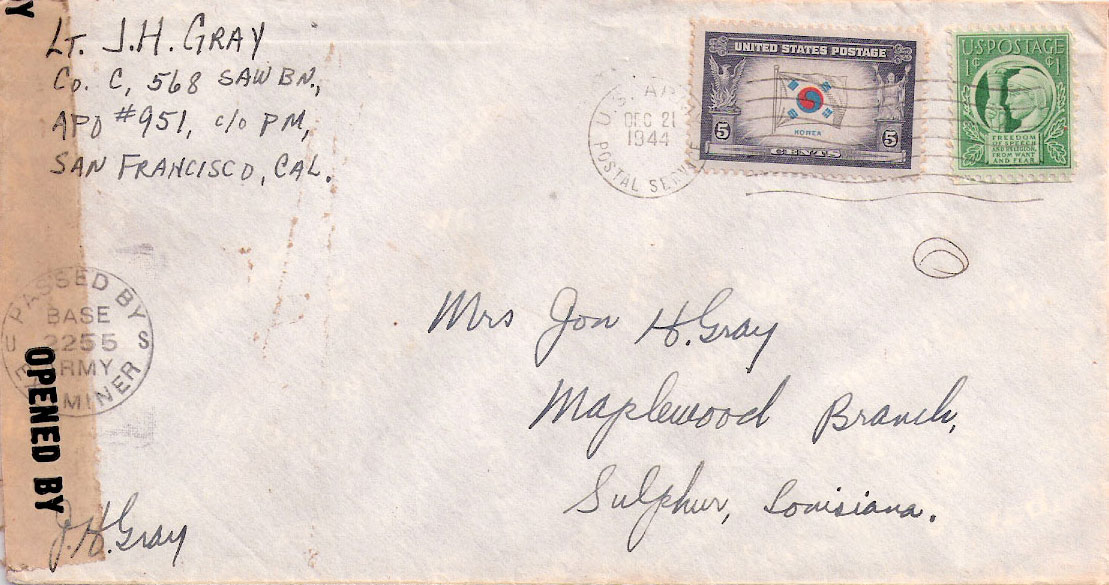 LT. J.H. GRAY
CO. C, 568 SAW BN.,
APO #951, c/o PM,
SAN FRANCISCO, CAL.
UNITED STATES POSTAGE
KOREA
5 5
CENTS
U.S. POSTAGE
1¢ ¢1
FREEDOM
OF SPEECH
AND RELIGION,
FROM WANT
AND FEAR
U.S. AR
DEC 21
1944
POSTAL SERVICE
PASSED BY
BASE
2255
ARMY
EXAMINER
U S
OPENED BY
Mrs Jon H. Gray
Maplewood Branch,
Sulphur, Louisiana.
J.H. Gray